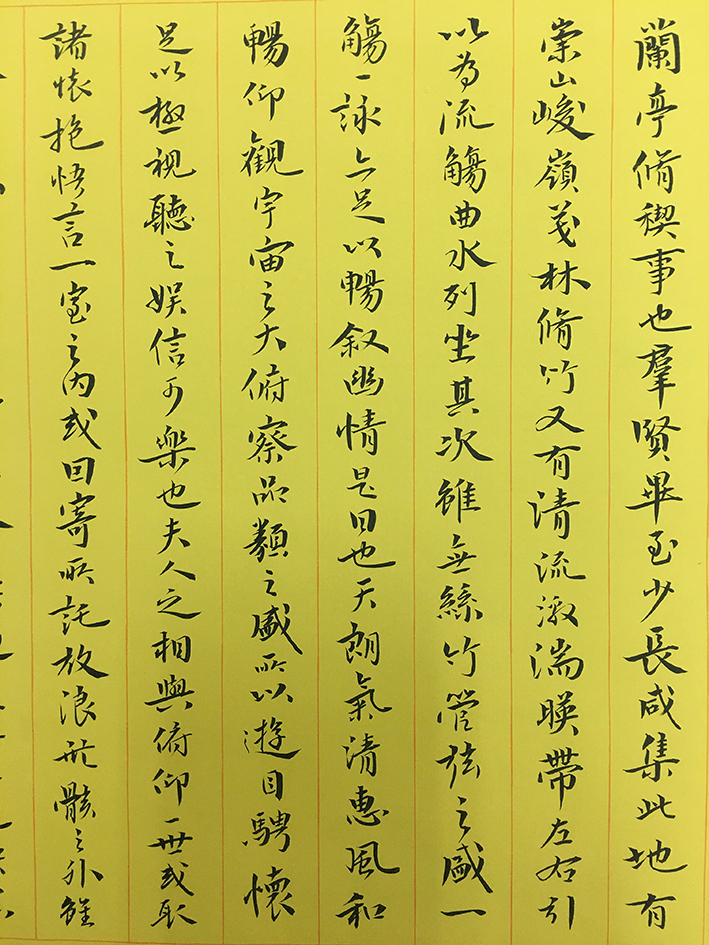 蘭亭脩禊事也羣賢畢至少長咸集此地有
崇山峻嶺茂林脩竹又有清流激湍暎帶左右引
以為流觴曲水列坐其次雖無絲竹管弦之盛一
觴一詠亦足以暢叙幽情是日也天朗氣清惠風和
暢仰觀宇宙之大俯察品類之盛所以遊目騁懷
足以極視聽之娛信可樂也夫人之相與俯仰一世或取
諸懷抱悟言一室之內或因寄所託放浪形骸之外雖